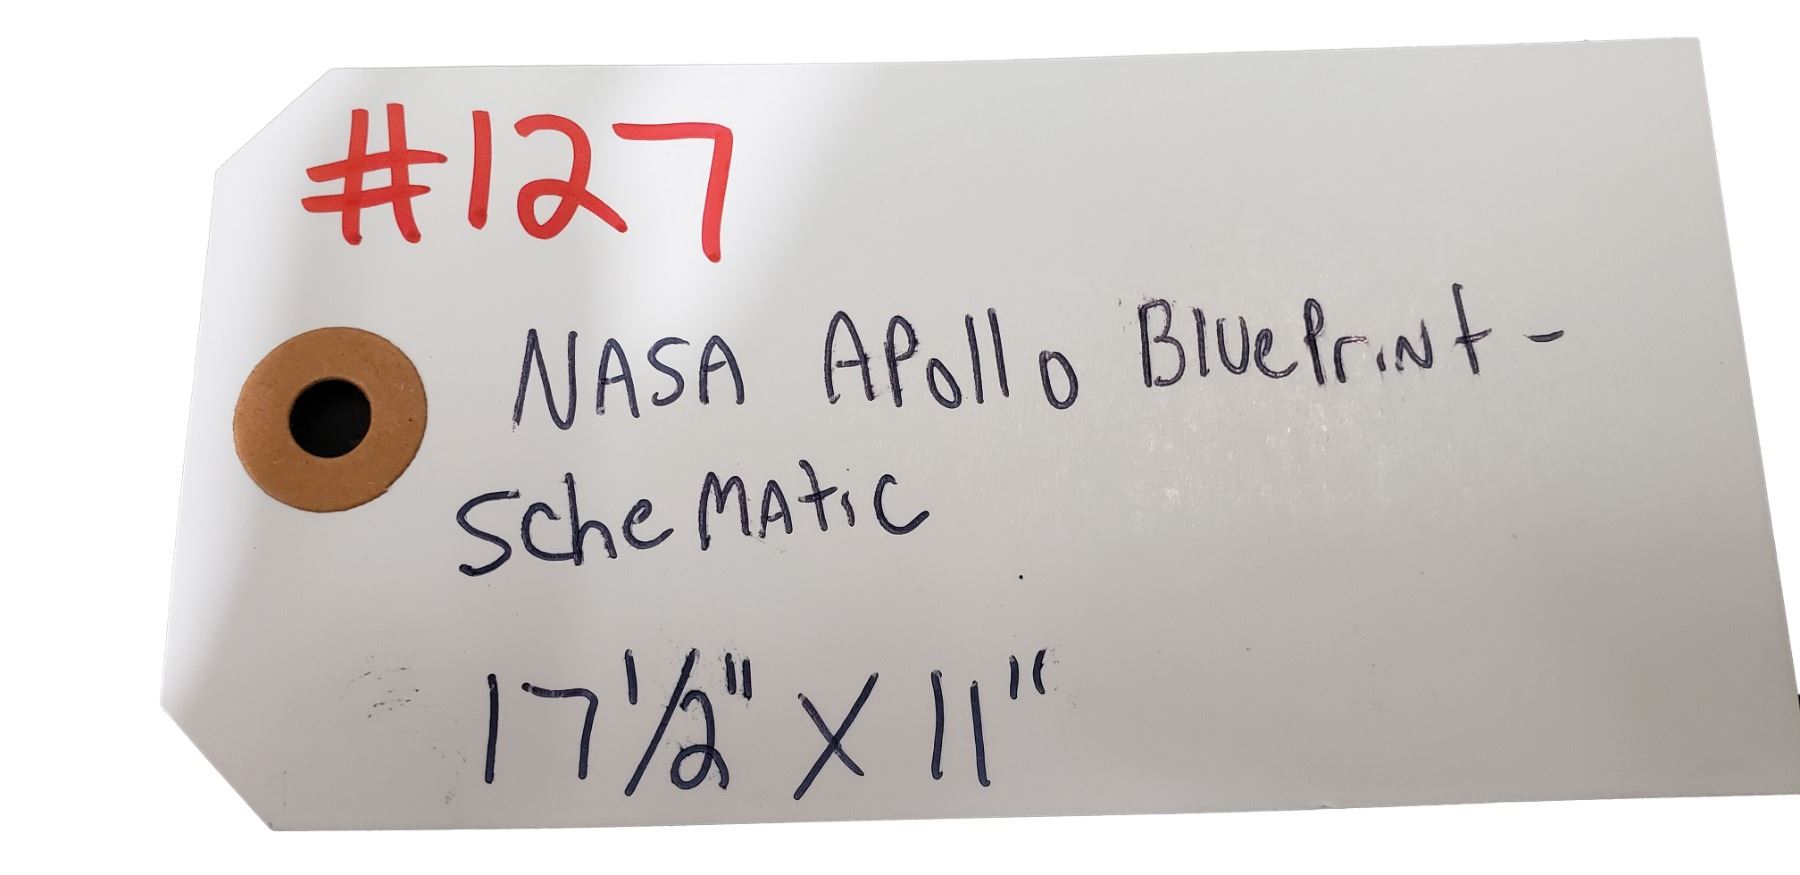 #127
NASA APollo BluePrint -
ScheMAtic
17 1/2" X 11"